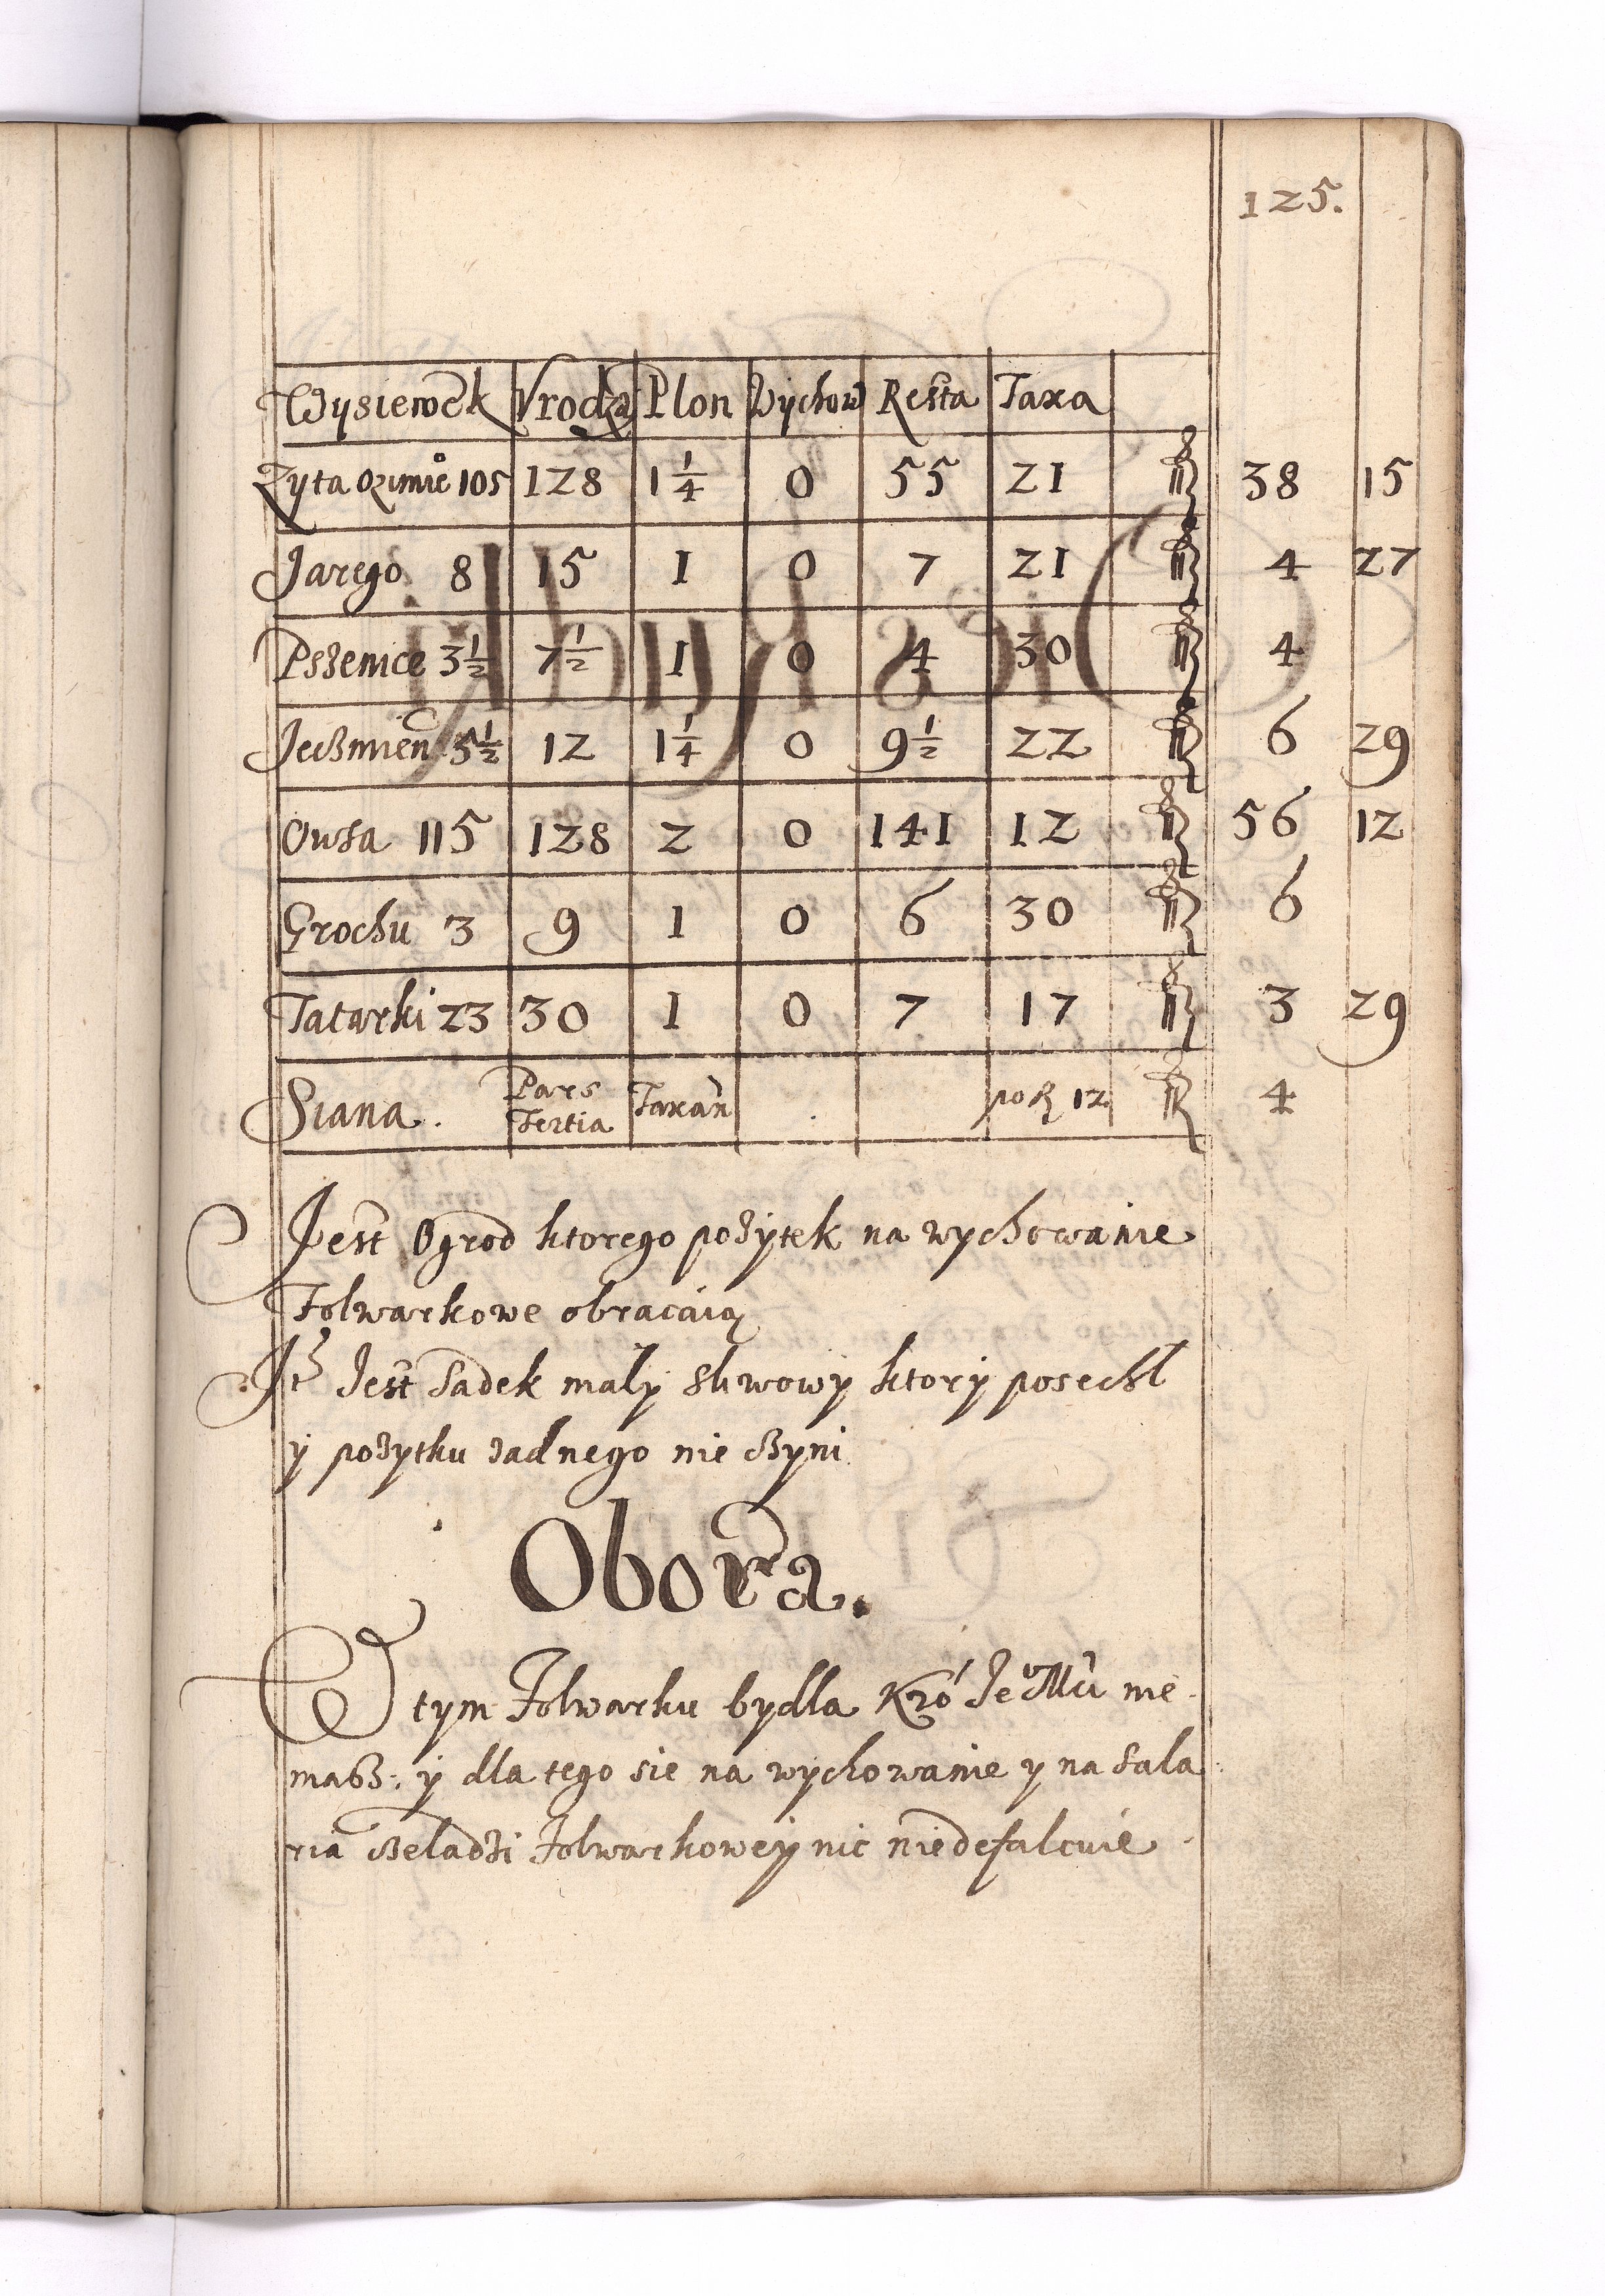 125.
Wysiewek Vrodzaj Plon Wychow Resta Taxa
Zyta Ozimie° 105 128 1 1/4 0 55 21 38 15
Jarego 8 15 1 0 7 21 4 27
Pszenice 3 1/2 7 1/2 1 0 4 30 4
Jeczmien 5 1/2 12 1 1/4 0 9 1/2 22 6 29
Owsa 115 128 2 0 141 12 56 12
Grochu 3 9 1 0 6 30 6
Tatarki 23 30 1 0 7 17 3 29
Siana. Pars Tertia Taxan 12 4
Jest Ogrod ktorego pozytek na wychowanie
Folwarkowe obracaią
Jest Sadek maly sliwowy ktory posechl
y pozytku zadnego nie czyni
Obora.
W tym Folwarku bydla Kró Je° Mci nie
masz: y dla tego sie na wychowanie y na sala
ria czeladzi Folwarkowey nic niedefalcuie